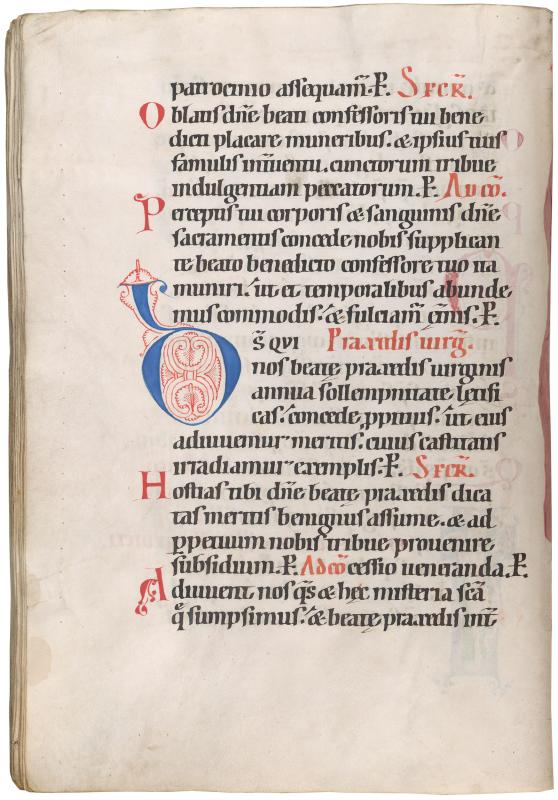 patrocinio assequam̃. P̃. SECR̃.
Oblatis dñe beati confessoris tui bene
dicti placare muneribus. & ipsius tuis
famulis int̃uentu. cunctorum tribue
indulgentiam peccatorum. P̃. Ad cō.
Perceptis tui corporis & sanguinis dñe
sacramentis concede nobis supplican
te beato benedicto confessore tuo ita
muniri. ut et temporalibus abunde
mus commodis. & fulciam̃ et̃nis. P̃.
DS̃ QVI Praxedis uirg̃.
nos beatę praxedis uirginis
annua sollempnitate lętifi
cas. concede ꝓpitius. ut eius
adiuuemur meritis. cuius castitatis
irradiamur exemplis. P̃. SECR̃.
Hostias tibi dñe beatę praxedis dica
tas meritis benignus assume. & ad
ꝑpetuum nobis tribue prouenire
subsidium. P̃. Ad cō cessio ueneranda. P̃.
Adiuuent nos q̃s & hęc misteria sc̃a
q̃ sumpsimus. & beatę praxedis int̃